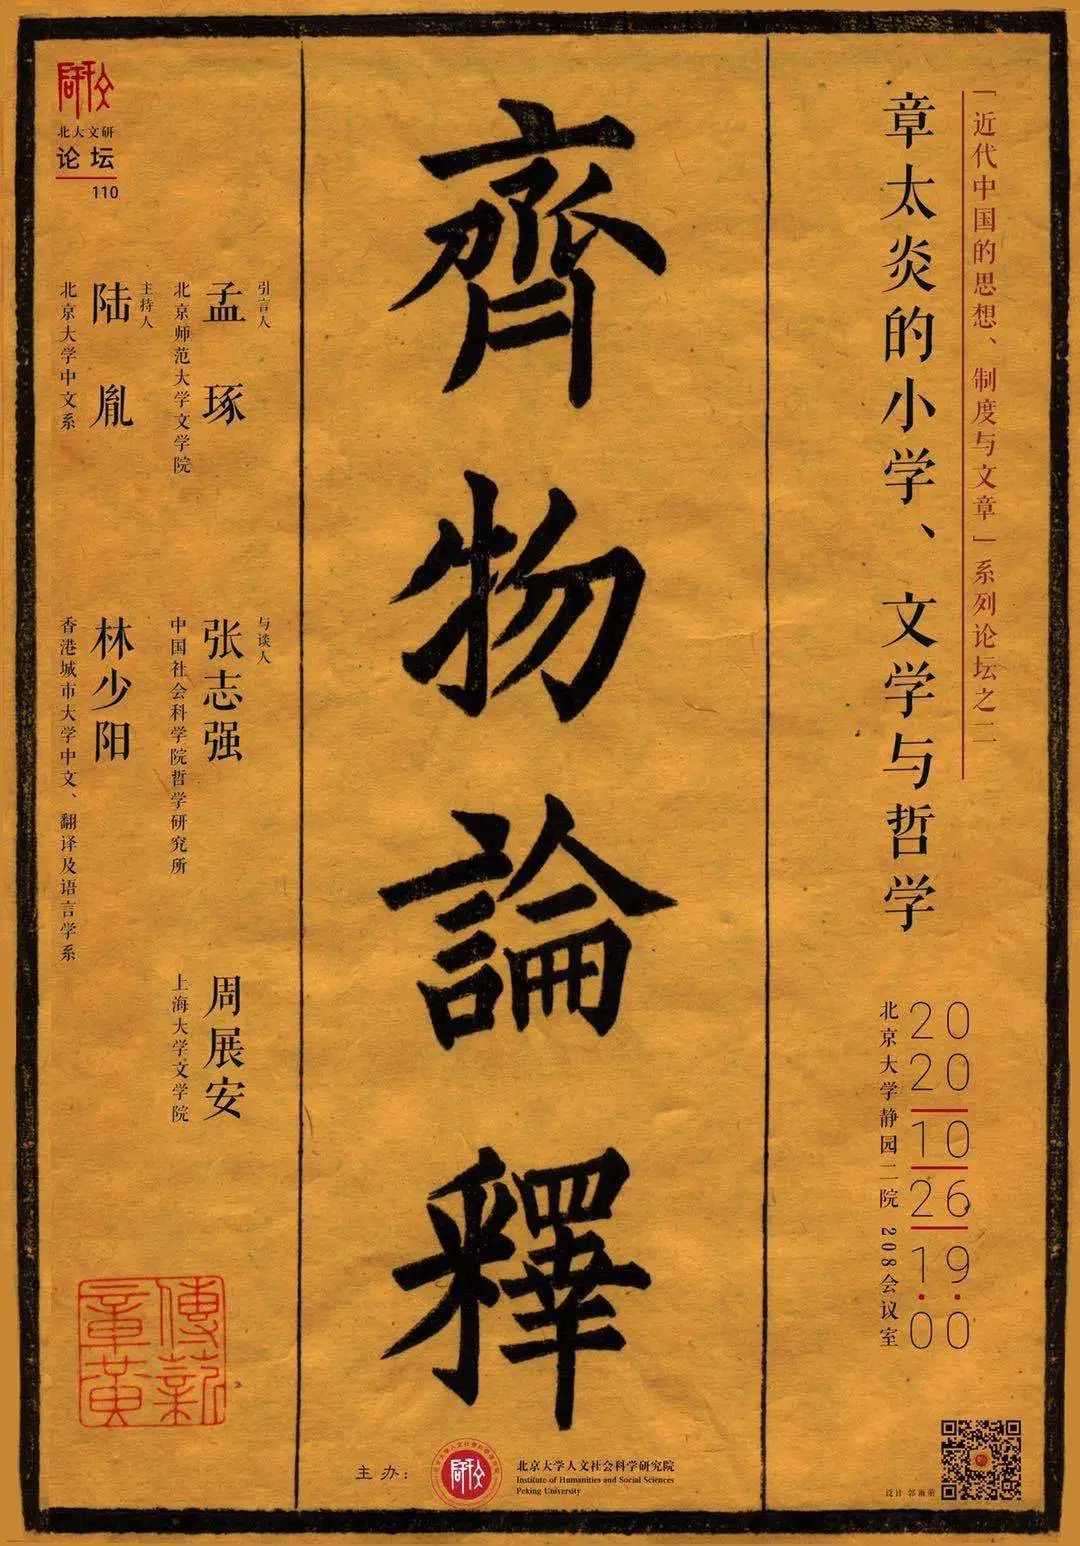 「近代中国的思想、制度与文章」系列论坛之二
章太炎的小学、文学与哲学
2020
10
26
19:00
北京大学静园二院 208会议室
齊物論釋
北大文研
论坛
110
引言人
孟琢
北京师范大学文学院
主持人
陆胤
北京大学中文系
与谈人
张志强
中国社会科学院哲学研究所
林少阳
香港城市大学中文、翻译及语言学系
周展安
上海大学文学院
傳薪
章黄
主办：
北京大学人文社会科学研究院
Institute of Humanities and Social Sciences
Peking University
设计